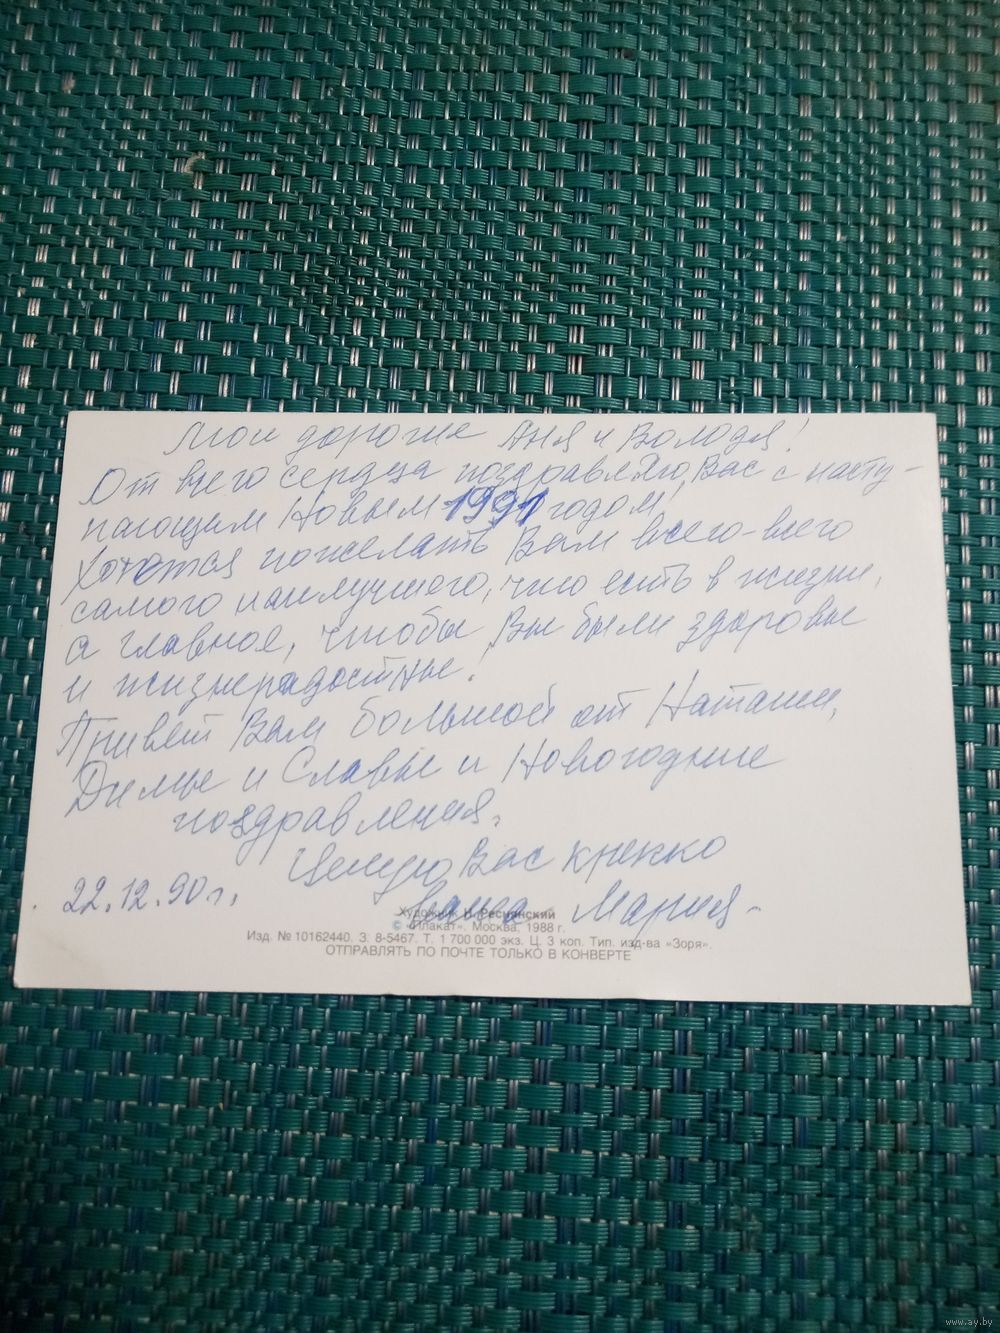 Мои дорогие Аня и Володя!
От всего сердца поздравляю Вас с насту-
пающим Новым 1991 годом!
Хочется пожелать Вам всего-всего
самого наилучшего, что есть в жизни,
а главное, чтобы Вы были здоровы
и жизнерадостны!
Привет Вам большой от Наташи,
Димы и Славы и Новогодние
поздравления.
Целую Вас крепко
22.12.90г. Ваша Мария.
Художник Н. Реснянский
© «Плакат». Москва. 1988 г.
Изд. № 10162440. З. 8-5467. Т. 1 700 000 экз. Ц. 3 коп. Тип. изд-ва «Зоря».
ОТПРАВЛЯТЬ ПО ПОЧТЕ ТОЛЬКО В КОНВЕРТЕ
www.ay.by